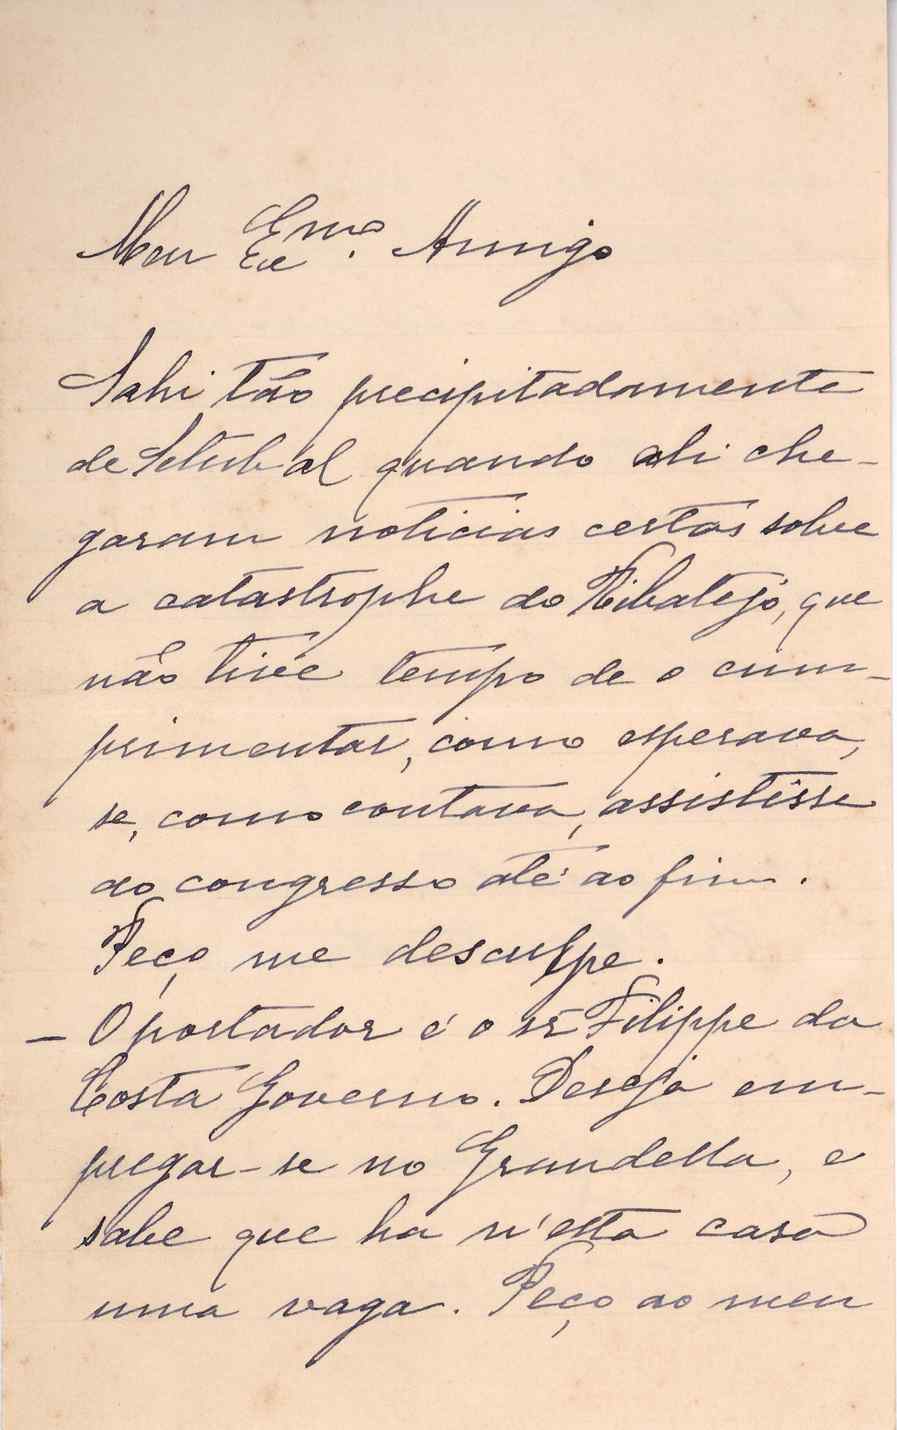 Meu Exmo. Amigo
Sahi tão precipitadamente
de Setubal quando ali che-
garam noticias certas sobre
a catastrophe do Ribatejo, que
não tive tempo de o cum-
primentar, como esperava,
se, como contava, assistisse
ao congresso até ao fim.
Peço me desculpe.
– O portador é o sr Filippe da
Costa Governo. Deseja em-
pregar-se no Grandella, e
sabe que ha n'esta casa
uma vaga. Peço ao meu